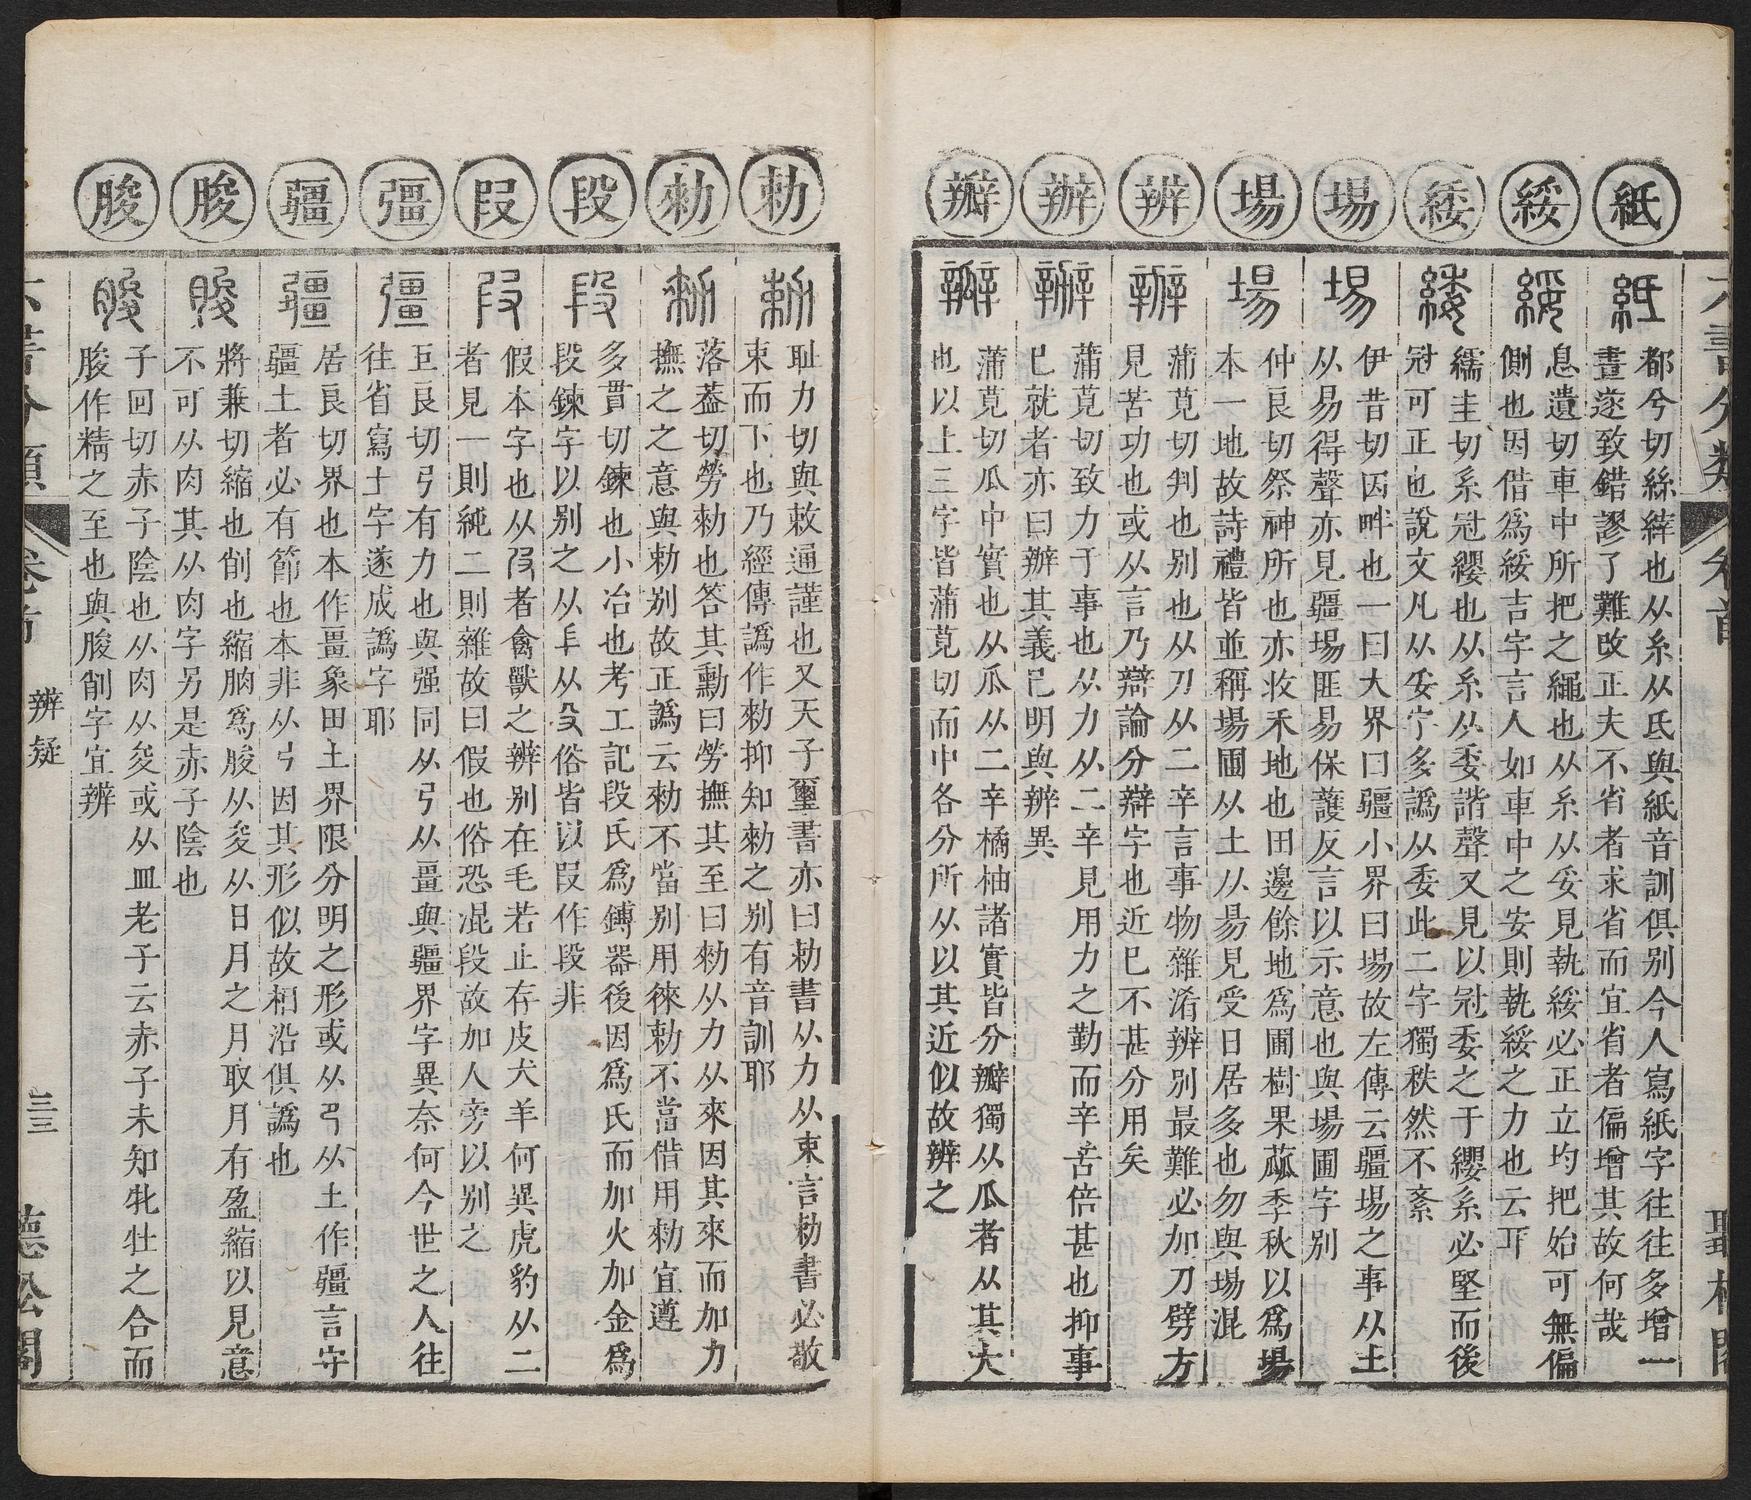 紙
綏
緌
埸
場
辨
辦
瓣
都兮切絲縡也从糸从氐與紙音訓俱别今人寫紙字往往多增一
畫遂致錯謬了難改正夫不省者求省而宜省者偏增其故何哉
息遺切車中所把之繩也从糸从妥見執綏必正立均把始可無偏
側也因借爲綏吉字言人如車中之安則執綏之力也云耳
繻圭切系冠纓也从系从委諧聲又見以冠委之于纓系必堅而後
冠可正也說文凡从妥字多譌从委此二字獨秩然不紊
伊昔切因畔也一曰大界曰疆小界曰埸故左傳云疆埸之事从土
从易得聲亦見疆埸匪易保護反言以示意也與場圃字别
仲良切祭神所也亦收禾地也田邊餘地爲圃樹果蓏季秋以爲場
本一地故詩禮皆並稱場圃从土从昜見受日居多也勿與埸混
蒲莧切判也别也从刀从二辛言事物雜淆辨别最難必加刀劈方
見苦功也或从言乃辯論分辯字也近已不甚分用矣
蒲莧切致力于事也从力从二辛見用力之勤而辛苦倍甚也抑事
已就者亦曰辦其義已明與辨異
蒲莧切瓜中實也从瓜从二辛橘柚諸實皆分瓣獨从瓜者从其大
也以上三字皆蒲莧切而中各分所从以其近似故辨之
聽松閣
勅
勑
段
叚
彊
疆
朘
朘
耻力切與敕通謹也又天子璽書亦曰勅書从力从束言勅書必敬
束而下也乃經傳譌作勑抑知勑之别有音訓耶
落葢切勞勑也答其勳曰勞撫其至曰勑从力从來因其來而加力
撫之之意與勅别故正譌云勑不當别用徠勅不當借用勑宜遵
多貫切鍊也小冶也考工記段氏爲鎛器後因爲氏而加火加金爲
段鍊字以别之从𠂤从殳俗皆以叚作段非
假本字也从叚者禽獸之辨别在毛若止存皮犬羊何異虎豹从二
者見一則純二則雜故曰假也俗恐混段故加人旁以别之
巨良切弓有力也與强同从弓从畺與疆界字異奈何今世之人往
往省寫土字遂成譌字耶
居良切界也本作畺象田土界限分明之形或从弓从土作疆言守
疆土者必有節也本非从弓因其形似故相沿俱譌也
將兼切縮也削也縮朒爲朘从夋从日月之月取月有盈縮以見意
不可从肉其从肉字另是赤子陰也
子回切赤子陰也从肉从夋或从血老子云赤子未知牝牡之合而
朘作精之至也與朘削字宜辨
六書分類 卷首 辨疑 三三 聽松閣